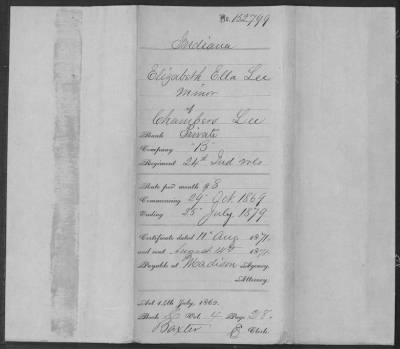 No. 152799
Indiana
Elizabeth Ella Lee
Minor
of
Chambers Lee
Rank Private
Company "B"
Regiment 24th Ind Vols
Rate per month $8
Commencing 29 Oct. 1869
Ending 25 July, 1879
Certificate dated 11 Aug 1871
and sent August 187
Payable at Madison Agency.
Attorney.
Act 14th July, 1862.
Book Vol. 4 Page 28.
Baxter Clerk.